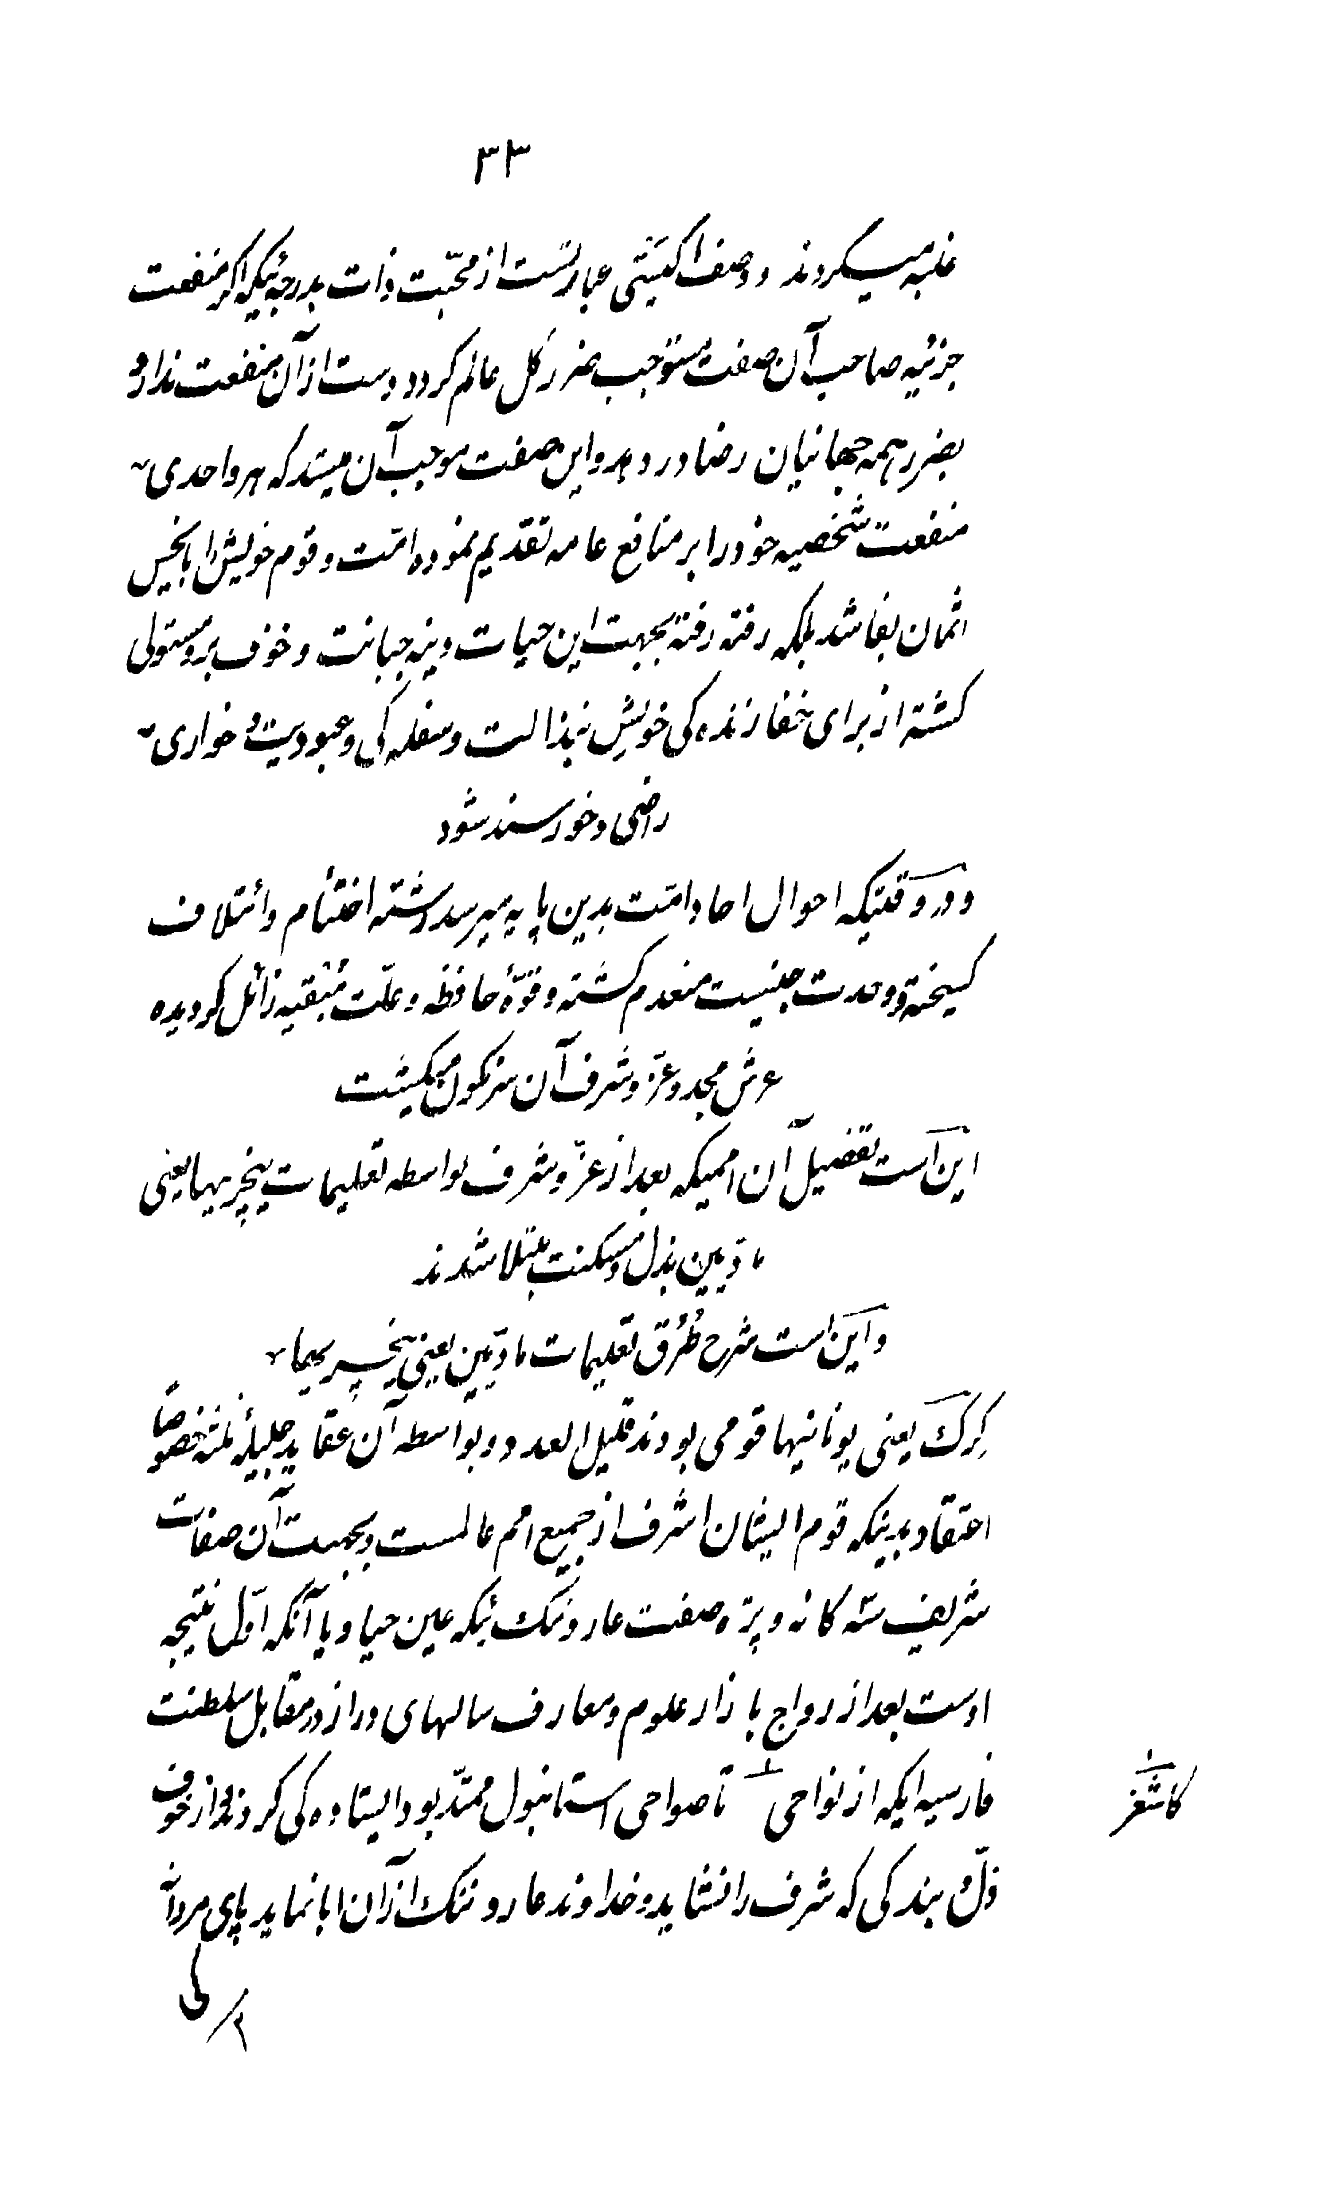 ۳۳
غلبه میکردند و وصف اگیستی عبارتست از محبّت ذات بدرجهٔ که اکر منفعت
جزئیه صاحب آن صفت مستوجب ضرر کل عالم کردد دست از آن منفعت ندارد و
بضرر همه جهانیان رضا در دهد و این صفت موجب آن میشد که هر واحدی
منفعت شخصیه خود را بر منافع عامه تقدیم نموده امّت و قوم خویش را بابخس
اثمان بفاشد بلکه رفته رفته بجهت این حیات دنیه جبانت و خوف بر او مستولی
کشته از برای حفظ زنده کی خویش بنذالت و سفله کی و عبودیت و خواری
راضی و خورسند شود
و در وقتیکه احوال احاد امّت بدین پایه میرسد رشته اختتام و ائتلاف
کسیخته و وحدت جنسیت منعدم کشته و قوّهٔ حافظه و علّت مُبْقیه زائل کردیده
عرش مجد و عزّ و شرف آن سرنکون میکشت
این است تفصیل آن اممیکه بعد از عزّ و شرف بواسطه تعلیمات نیچریها یعنی
مادّیین بذل و مسکنت مبتلا شدند
و این است شرح طُرُق تعلیمات مادّیین یعنی نیچریها
کِرک یعنی یونانیها قومی بودند قلیل العدد و بواسطه آن عقاید جلیلهٔ ثلثه خصوصًا
اعتقاد بدینکه قوم ایشان اشرف از جمیع امم عالمست و بجهت آن صفات
شریف سه کانه و بویژه صفت عار و ننک که عین حیا و یا آنکه اوّل نتیجه
اوست بعد از رواج بازار علوم و معارف سالهای دراز در مقابل سلطنت
فارسیه ایکه از نواحی تا ضواحی استانبول ممتدّ بود ایستاده کی کردند و از خوف
کاشغر
ذلّ بندکی که شرف را نشاید و خداوند عار و ننک از آن ابا نماید پای مردانه
کی
۲